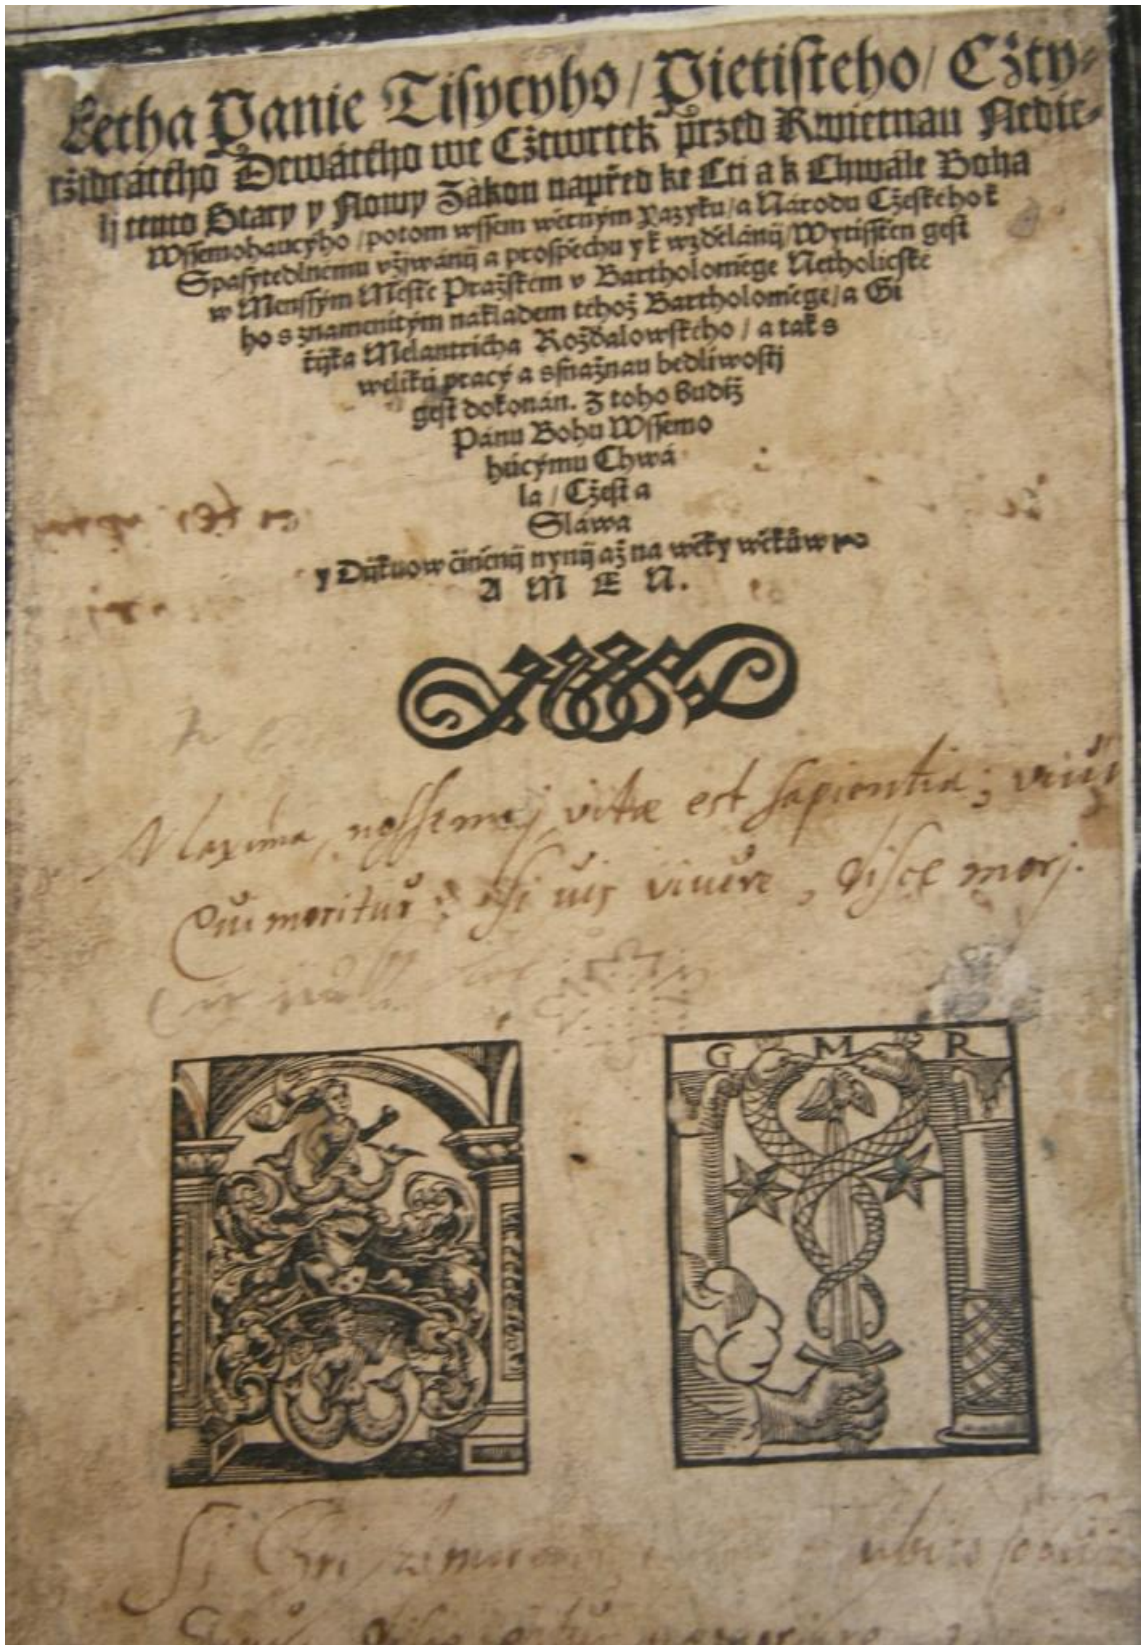 Letha Panie Tisycyho / Pietisteho / Cžty⸗
rżidcatého Dewátého we Cžtwrtek przed Kwietnau Nedie⸗
lj tento Stary y Nowy Zákon napřed ke Cti a k Chwále Boha
Wssemohaucyho / potom wssem wěrným Yazyku / a Národu Cžeského k
Spasytedlnemu vžjwánij a prospěchu y k wzdělánij / Wytisstěn gest
w Menssým Městě Pražském v Bartholoměge Netholického
ho s znamenitým nakladem téhož Bartholoměge / a Gi
řijka Melantricha Rožďalowského / a tak s
welikú pracý a snažnau bedliwostj
gest dokonán. Z toho budiž
Pánu Bohu Wssemo
húcýmu Chwá
la / Cžest a
Sláwa
y Dijkuow činěnij nynij až na wěky wěkůw
A M E N .
Maxima, nosse mori, vitæ est sapientia;
Cui moritur si vis vivere, disce morj.
G M R
Si
ubi